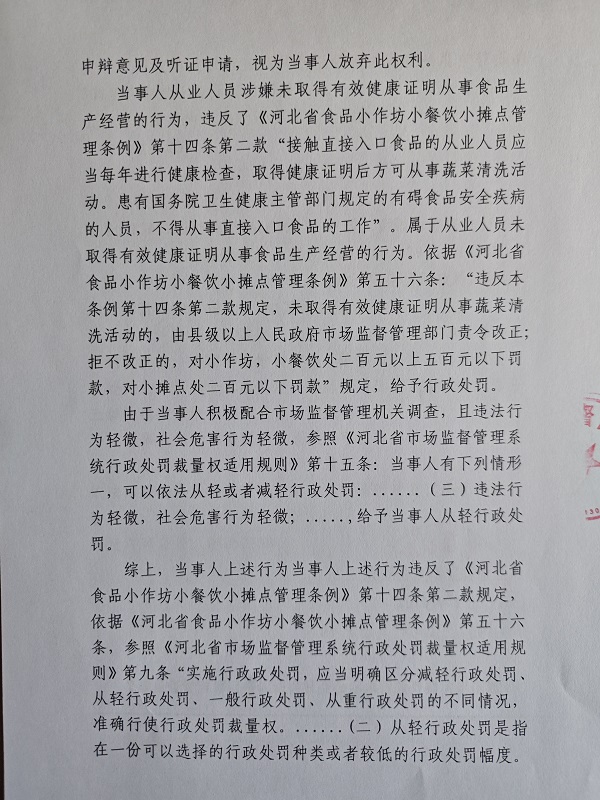 申辩意见及听证申请，视为当事人放弃此权利。
当事人从业人员涉嫌未取得有效健康证明从事食品生
产经营的行为，违反了《河北省食品小作坊小餐饮小摊点管
理条例》第十四条第二款“接触直接入口食品的从业人员应
当每年进行健康检查，取得健康证明后方可从事蔬菜清洗活
动。患有国务院卫生健康主管部门规定的有碍食品安全疾病
的人员，不得从事直接入口食品的工作”。属于从业人员未
取得有效健康证明从事食品生产经营的行为。依据《河北省
食品小作坊小餐饮小摊点管理条例》第五十六条：“违反本
条例第十四条第二款规定，未取得有效健康证明从事蔬菜清
洗活动的，由县级以上人民政府市场监督管理部门责令改正；
拒不改正的，对小作坊，小餐饮处二百元以上五百元以下罚
款，对小摊点处二百元以下罚款”规定，给予行政处罚。
由于当事人积极配合市场监督管理机关调查，且违法行
为轻微，社会危害行为轻微，参照《河北省市场监督管理系
统行政处罚裁量权适用规则》第十五条：当事人有下列情形
一，可以依法从轻或者减轻行政处罚：......（三）违法行
为轻微，社会危害行为轻微；.....,给予当事人从轻行政处
罚。
综上，当事人上述行为当事人上述行为违反了《河北省
食品小作坊小餐饮小摊点管理条例》第十四条第二款规定，
依据《河北省食品小作坊小餐饮小摊点管理条例》第五十六
条，参照《河北省市场监督管理系统行政处罚裁量权适用规
则》第九条“实施行政政处罚，应当明确区分减轻行政处罚、
从轻行政处罚、一般行政处罚、从重行政处罚的不同情况，
准确行使行政处罚裁量权。......(二）从轻行政处罚是指
在一份可以选择的行政处罚种类或者较低的行政处罚幅度。